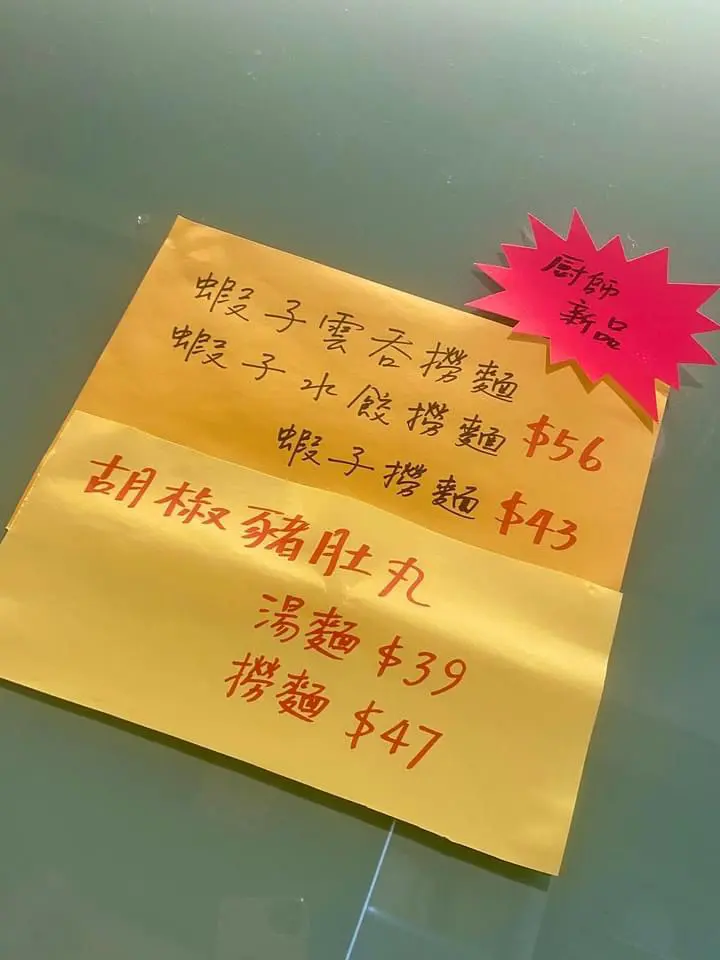 廚師
新品
蝦子雲吞撈麵
蝦子水餃撈麵 $56
蝦子撈麵 $43
胡椒豬肚丸
湯麵 $39
撈麵 $47